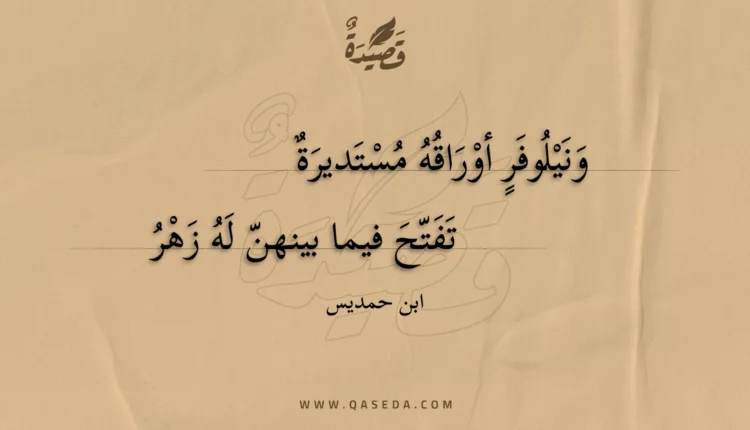 قَصِيْدَةٌ
وَنَيْلُوفَرٍ أوْرَاقُهُ مُسْتَديرَةٌ
تَفَتّحَ فيما بينهنّ لَهُ زَهْرُ
ابن حمديس
WWW.QASEDA.COM